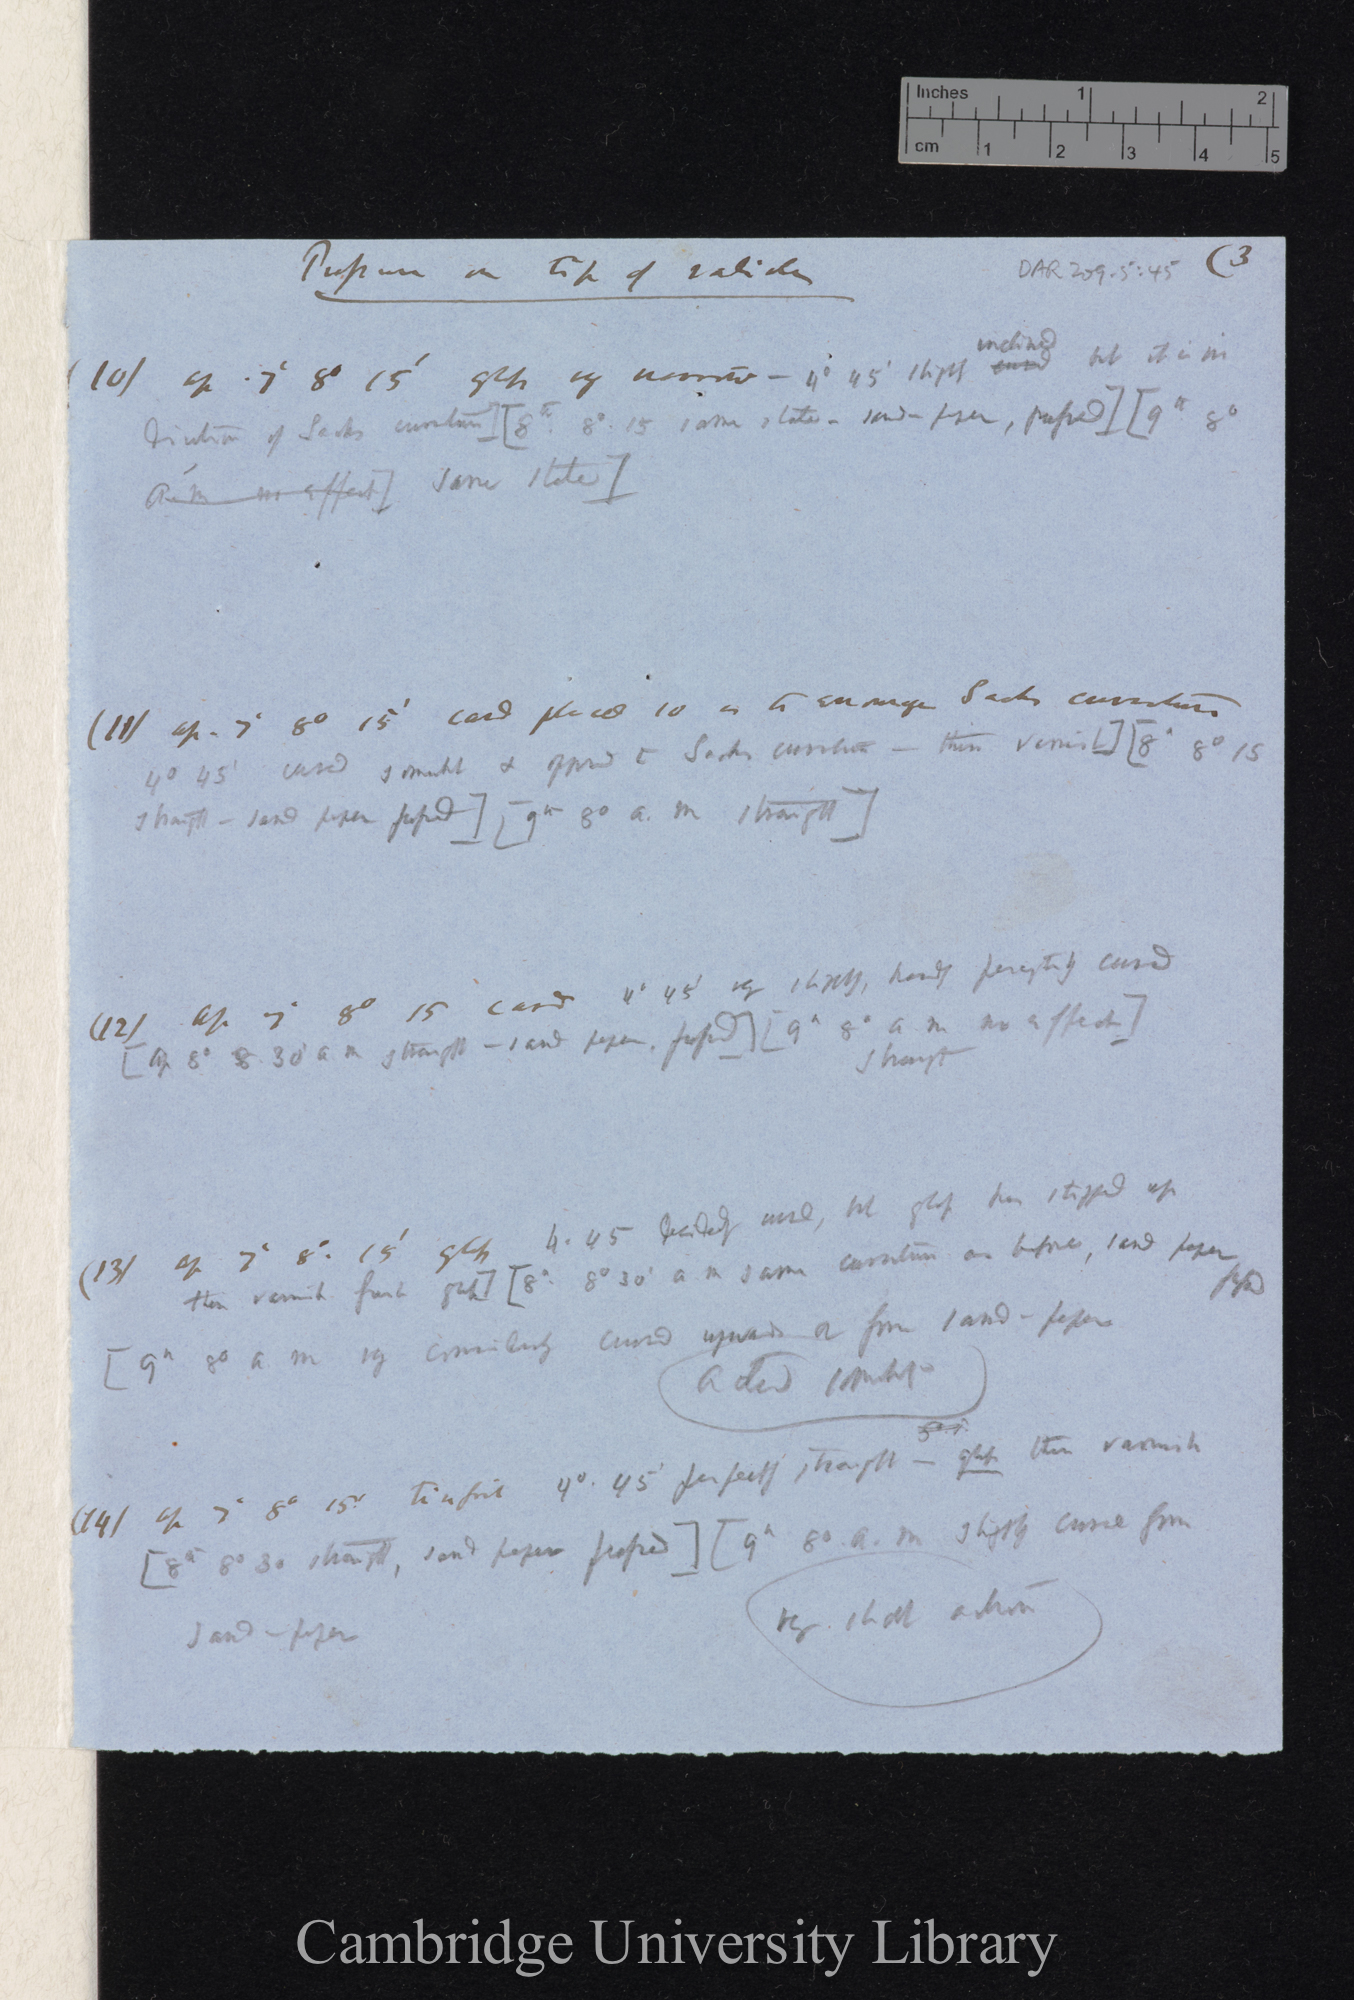 Inches 1 2
cm 1 2 3 4 5
Pressure on tip of radicles
DAR 209.5:45 (3
(10) Ap. 7th 8° 15' glass very narrow – 4° 45' slight inclined curved but it is in
direction of Sachs curvature] [8th 8°. 15 same state – sand-paper, pressed] [9th 8°
a.m no effect] same state]
(11) Ap. 7th 8° 15' card placed so as to encourage Sachs curvature
4° 45' curved somewhat & opposed to Sachs curvature – then varnish] [8th 8° 15
straight – sand paper pressed] [9th 8° a. m straight]
(12) Ap 7th 8° 15 card 4° 45' very slightly, hardly perceptibly curved
[Ap 8° 8. 30' a m straight – sand paper. pressed] [9th 8° a m no effect]
straight
(13) Ap 7th 8°. 15' glass 4. 45 decidedly curved, but glass has slipped up
then varnish fresh glass] [8th 8° 30' a m same curvature as before, sand paper
pressed
[9th 8° a m very considerably curved upwards or from sand-paper
Acted somewhat
(14) Ap 7th 8° 15' tinfoil 4°. 45' perfectly straight – glass then varnish
[8th 8° 30 straight, sand paper pressed] [9th 8° a. m slightly curved from
sand-paper
very slight action
Cambridge University Library